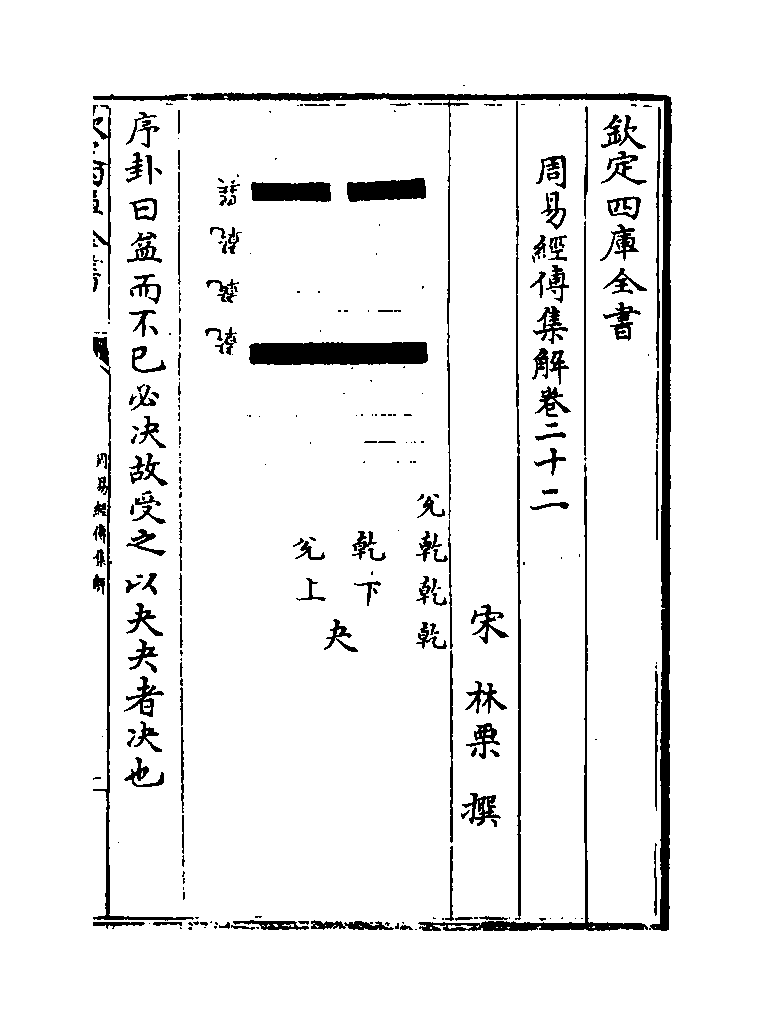 欽定四庫全書
周易經傳集解卷二十二
宋 林栗 撰
兌乾乾乾
乾下
兌上
夬
乾乾乾
序卦曰益而不已必决故受之以夬夬者决也
周易經傳集解